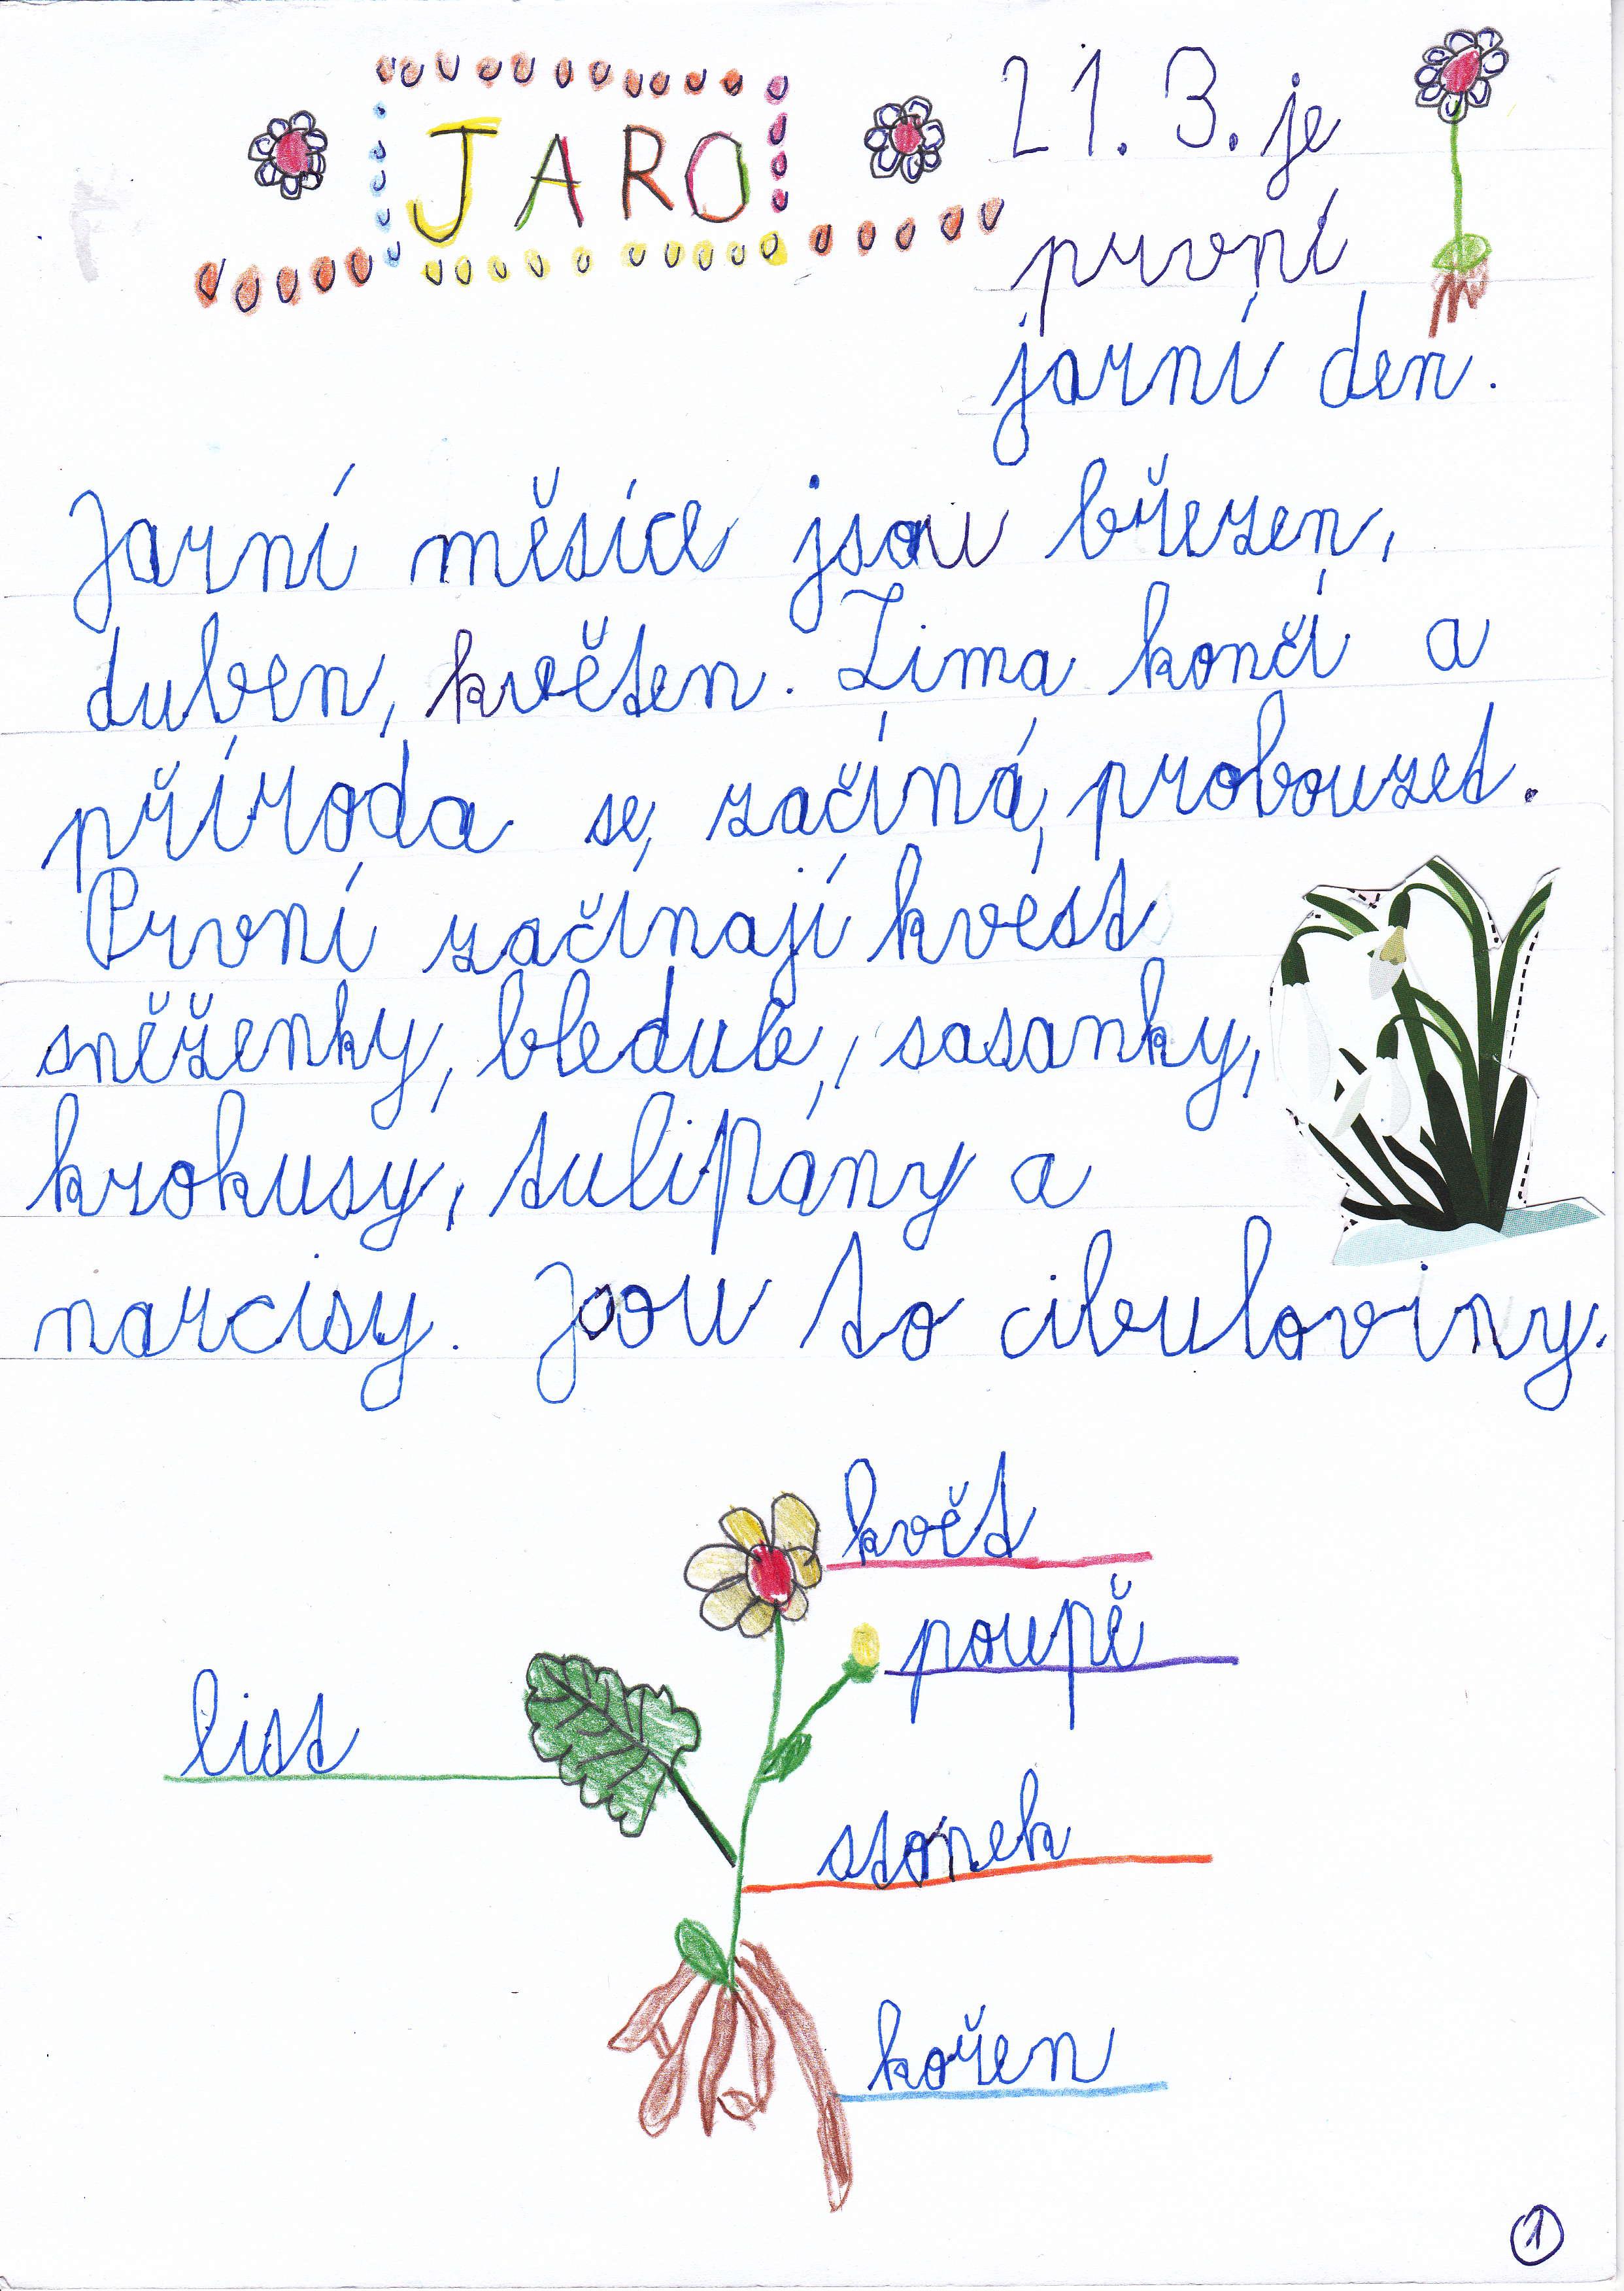 JARO
21. 3. je
první
jarní den.
Jarní měsíce jsou březen,
duben, květen. Zima končí a
příroda se začíná probouzet.
První začínají kvést
sněženky, bledule, sasanky,
krokusy, tulipány a
narcisy. Jsou to cibuloviny.
květ
poupě
list
stonek
kořen
1